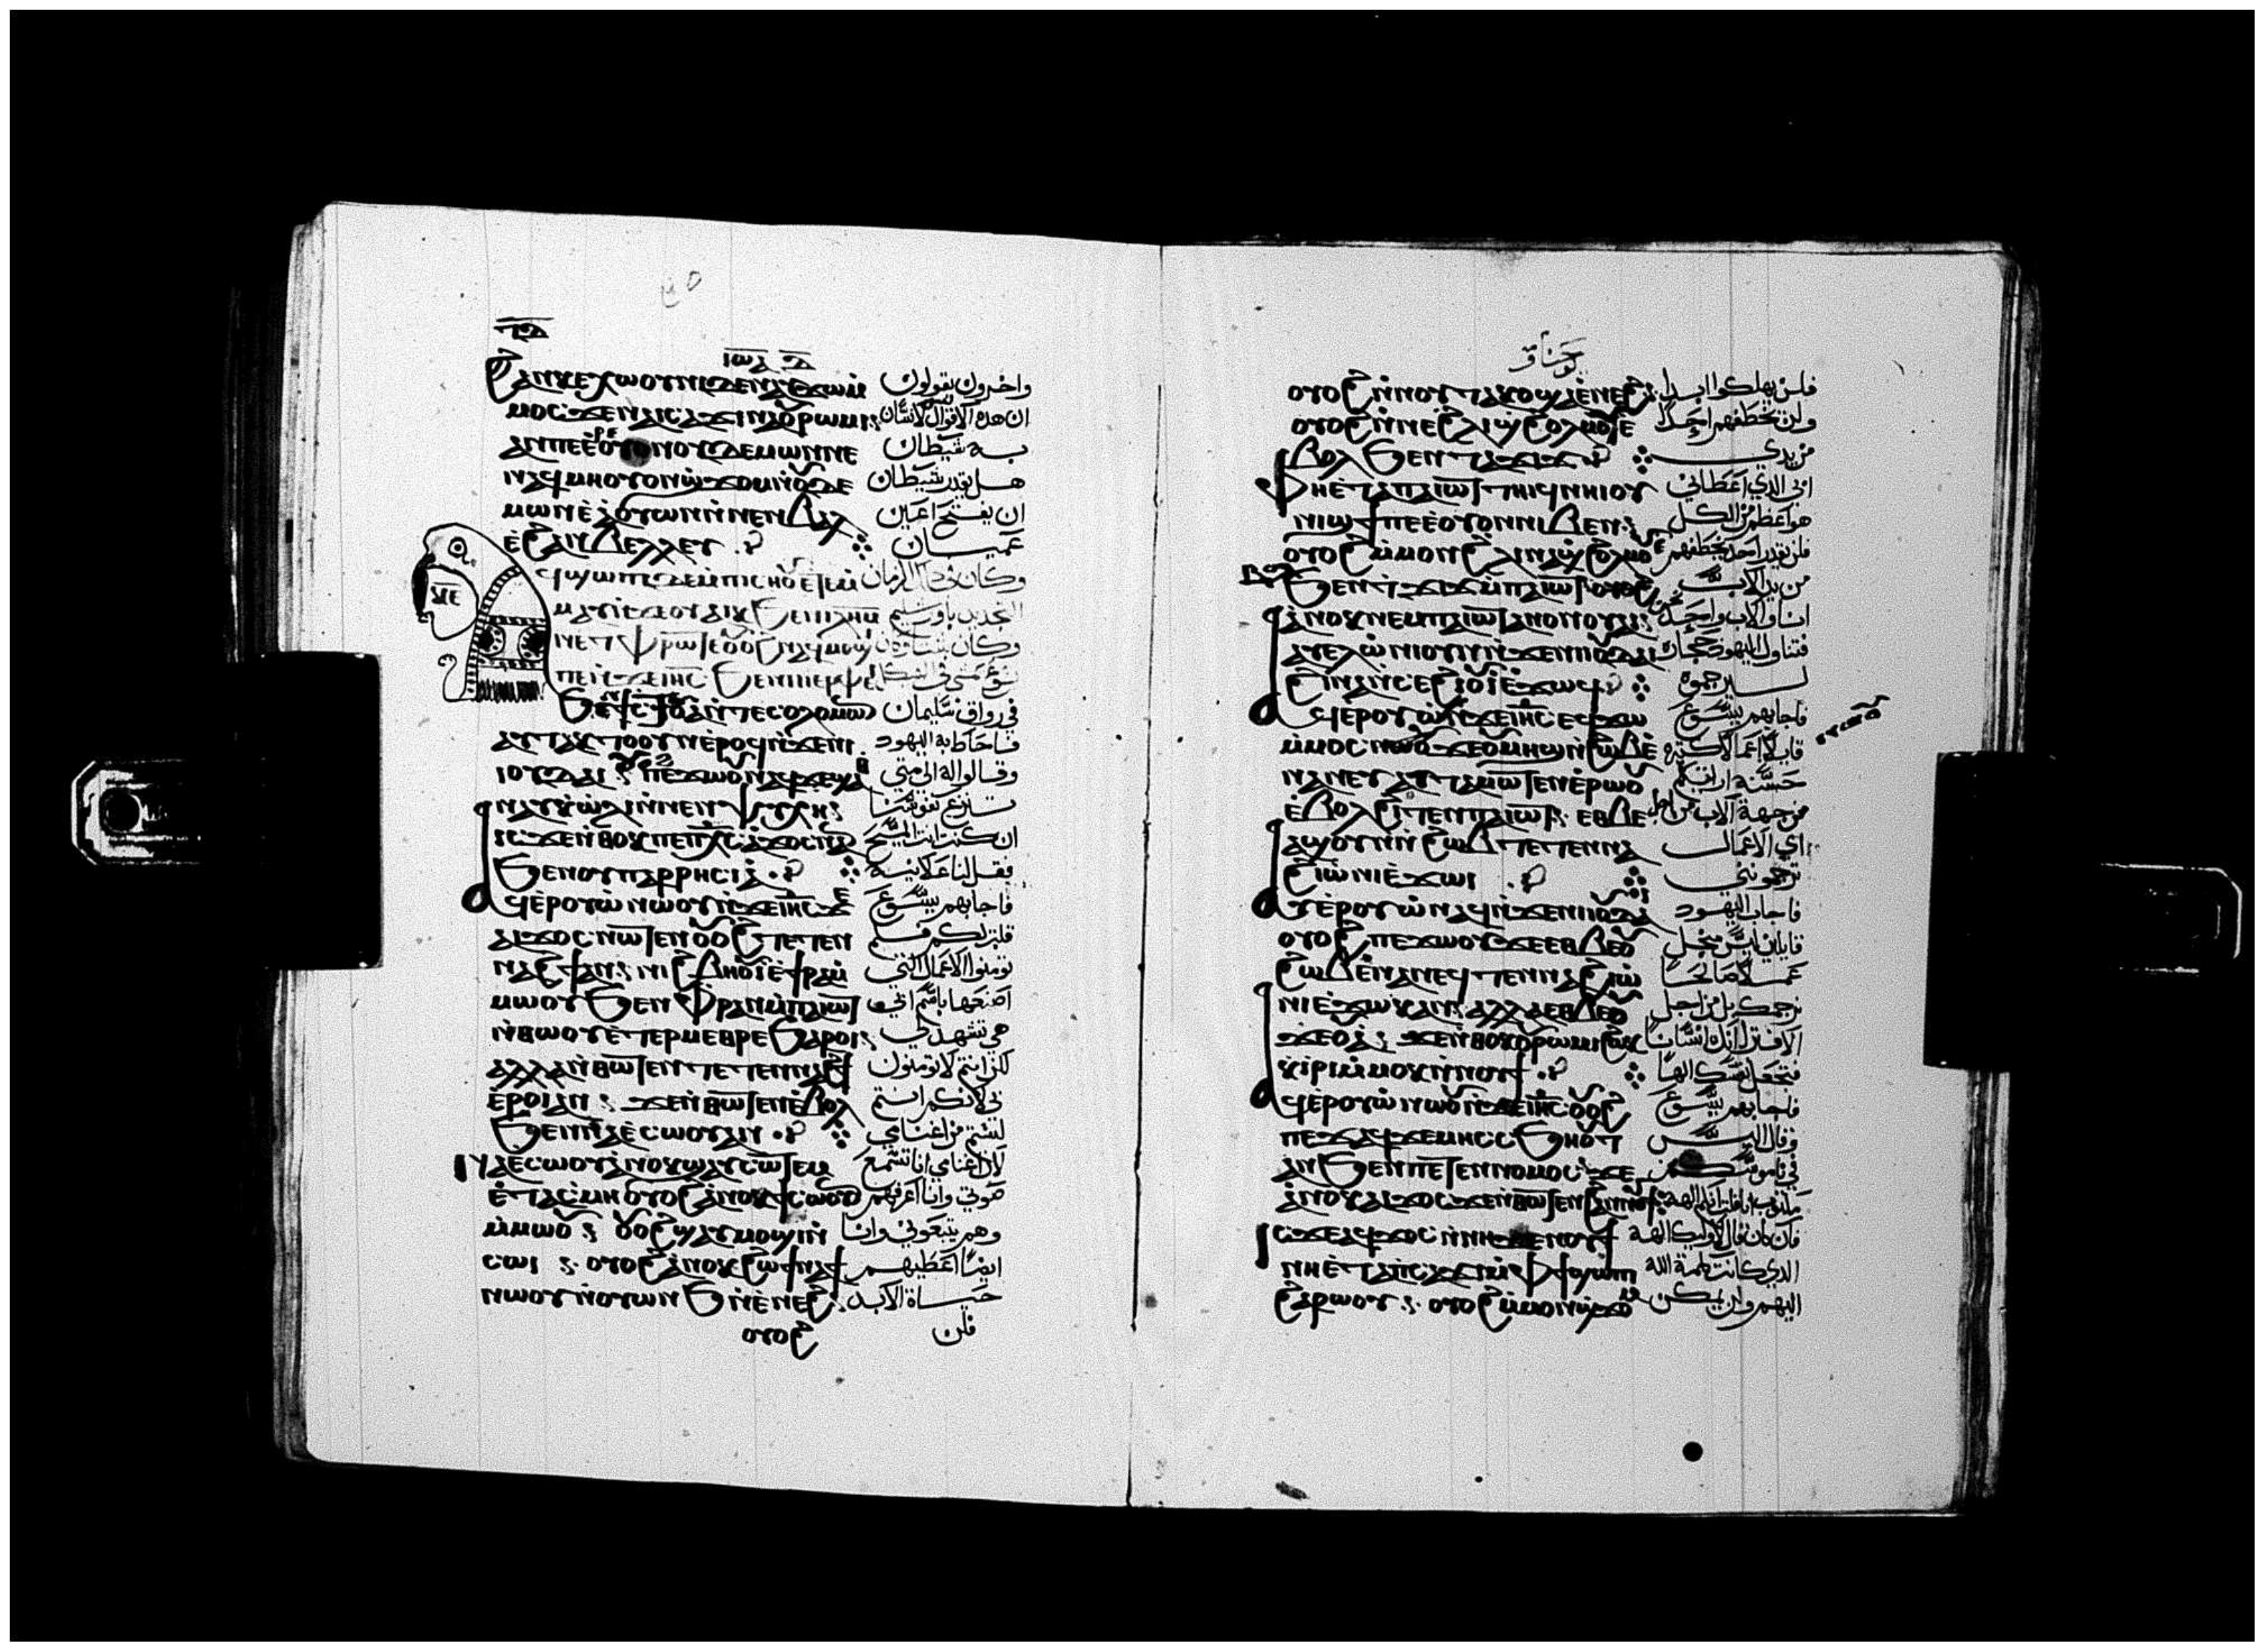 ⲓⲱⲁ
ϩⲁⲛⲕⲉⲭⲱⲟⲩⲛⲓ ⲇⲉ ⲛⲁⲩϫⲱⲙ واخرون يقولون
ⲙⲟⲥ ϫⲉ ⲛⲁⲓⲥⲁϫⲓ ⲛⲁ ⲟⲩⲣⲱⲙⲓ ان هذه الاقوال لانسان
ⲁⲛ ⲡⲉ ⲉⲟⲩⲟⲛ ⲟⲩⲇⲉⲙⲱⲛ ⲛⲉ به شيطان
ⲙⲏ ⲟⲩⲟⲛ ϣϫⲟⲙ ⲛⲟⲩⲇⲉ هل يقدر شيطان
ⲙⲱⲛ ⲉⲁⲟⲩⲱⲛ ⲛⲛⲉⲛⲃⲁⲗ ان يفتح اعين
ⲉϩⲁⲛⲃⲉⲗⲗⲉⲩ عميان
ⲁϥϣⲱⲡⲓ ⲇⲉ ⲙⲡⲓⲥⲏⲟⲩ ⲉⲧⲉⲙ وكان في ذلك الزمان
ⲡⲉ ⲛϫⲉ ⲓⲏⲥ ϧⲉⲛ ⲡⲓⲉⲣⲫⲉⲓ يسوع يمشي في الهيكل
في رواق سليمان
ⲁⲩⲧⲁⲥⲑⲟ ⲟⲩⲛ ⲉⲣⲟϥ ⲛϫⲉ ⲛⲓ فاحاط به اليهود
ⲓⲟⲩⲇⲁⲓ ⲡⲉϫⲱⲟⲩ ⲛⲁϥ ϫⲉ ϣⲁ وقالوا له الى متي
ⲛⲁⲩ ⲕⲱⲗⲓ ⲛⲛⲉⲛⲯⲩⲭⲏ تنزع نفوسنا
ⲓⲥϫⲉ ⲛⲑⲟⲕ ⲡⲉ ⲡⲭⲥ ⲁϫⲟⲥ ⲛⲁⲛ ان كنت انت المسيح
ϧⲉⲛ ⲟⲩⲡⲁⲣⲣⲏⲥⲓⲁ فقل لنا علانية
ⲁϥⲉⲣⲟⲩⲱ ⲛⲱⲟⲩ ⲛϫⲉ ⲓⲏⲥ ϫⲉ فاجابهم يسوع
ⲁⲓϫⲟⲥ ⲛⲱⲧⲉⲛ ⲟⲩⲟϩ ⲧⲉⲧⲉⲛ قلت لكم فلم
ⲛⲁϩϯ ⲁⲛ ⲛⲓϩⲃⲏⲟⲩⲓ ⲉϯⲣⲁ تومنوا الاعمال التي
ⲙⲙⲱⲟⲩ ϧⲉⲛ ⲫⲣⲁⲛ ⲙⲡⲁⲓⲱⲧ اصنعها باسم ابي
ⲛⲑⲱⲟⲩ ⲉⲧⲉⲣⲙⲉⲑⲣⲉ ϧⲁⲣⲟⲓ هي تشهد لي
ⲁⲗⲗⲁ ⲛⲑⲱⲧⲉⲛ ⲧⲉⲧⲉⲛⲛⲁϩϯ لكن انتم لا تومنون
ⲉⲣⲟⲓ ⲁⲛ ϫⲉ ⲛⲑⲱⲧⲉⲛ ⲉⲃⲟⲗ بي لانكم انتم
ϧⲉⲛ ⲛⲁⲉⲥⲱⲟⲩ ⲁⲛ لستم من اغنامي
ⲛⲁⲉⲥⲱⲟⲩ ⲁⲛⲟⲕ ϣⲁⲩⲥⲱⲧⲉⲙ لان اغنامي انا تسمع
ⲉⲧⲁⲥⲙⲏ ⲟⲩⲟϩ ⲁⲛⲟⲕ ϯⲥⲱⲟⲩⲛ صوتي وانا اعرفهم
ⲙⲙⲱⲟⲩ ⲟⲩⲟϩ ϣⲁⲩⲙⲟϣⲓ ⲛ وهم يتبعوني وانا
ⲥⲱⲓ ⲟⲩⲟϩ ⲁⲛⲟⲕ ϩⲱ ϯⲛⲁϯ ايضا اعطيهم
ⲛⲱⲟⲩ ⲛⲟⲩⲱⲛϧ ⲛⲉⲛⲉϩ حياة الابد
ⲟⲩⲟϩ فلن
يوحنا
ⲟⲩⲟϩ ⲛⲛⲟⲩⲧⲁⲕⲟ ϣⲁⲉⲛⲉϩ فلن يهلكوا ابدا
ⲟⲩⲟϩ ⲛⲛⲉ ϩⲗⲓ ϣϩⲟⲗⲙⲟⲩ ⲉ ولن يخطفهم احد
ⲃⲟⲗ ϧⲉⲛ ⲧⲁϫⲓϫ من يدي
ⲫⲏⲉⲧⲁ ⲡⲁⲓⲱⲧ ⲧⲏⲓϥ ⲛⲏⲓ ⲟⲩ ابي الذي اعطاني
ⲛⲓϣϯ ⲡⲉ ⲉⲟⲩⲟⲛ ⲛⲓⲃⲉⲛ هو اعظم من الكل
ⲟⲩⲟϩ ⲙⲙⲟⲛ ϩⲗⲓ ⲛⲁϣϩⲟⲗⲙⲟⲩ ⲉ فلن يقدر احد يخطفهم
ⲃⲟⲗ ϧⲉⲛ ⲧϫⲓϫ ⲙⲡⲁⲓⲱⲧ من يد الاب
ⲁⲛⲟⲕ ⲛⲉⲙ ⲡⲁⲓⲱⲧ ⲁⲛⲟⲛ ⲟⲩⲁⲓ انا والاب واحد
ⲁⲩⲉⲗ ⲱⲛⲓ ⲟⲩⲛ ⲛϫⲉ ⲛⲓⲟⲩⲇⲁⲓ فتناول اليهود حجارة
ϩⲓⲛⲁ ⲛⲥⲉϩⲓⲟⲩⲓ ⲉϫⲱϥ ليرجموه
ⲁϥⲉⲣⲟⲩⲱ ⲛϫⲉ ⲓⲏⲥ ⲉϥϫⲱ فاجابهم يسوع
ⲙⲙⲟⲥ ⲛⲱⲟⲩ ϫⲉ ⲟⲩⲙⲏϣ ⲛϩⲱⲃ ⲉ قايلا اعمالا كثيرة
ⲛⲁⲛⲉⲩ ⲁⲓⲧⲁⲙⲱⲧⲉⲛ ⲉⲣⲱⲟⲩ حسنة اريتكم
ⲉⲃⲟⲗ ϩⲓⲧⲉⲛ ⲡⲁⲓⲱⲧ ⲉⲑⲃⲉ من جهة الاب من اجل
ⲁϣ ⲟⲩⲛ ⲛϩⲱⲃ ⲧⲉⲧⲉⲛⲛⲁ اي الاعمال
ϩⲓⲱⲛⲓ ⲉϫⲱⲓ ترجموني
ⲁⲩⲉⲣⲟⲩⲱ ⲛⲁϥ ⲛϫⲉ ⲛⲓⲟⲩⲇⲁⲓ فاجاب اليهود
ⲟⲩⲟϩ ⲡⲉϫⲱⲟⲩ ϫⲉ ⲉⲑⲃⲉ ⲟⲩ قايلين ليس من اجل
ϩⲱⲃ ⲉⲛⲁⲛⲉϥ ⲧⲉⲛⲛⲁϩⲓⲱ عملا صالحا
ⲛⲓ ⲉϫⲱⲕ ⲁⲛ ⲁⲗⲗⲁ ⲉⲑⲃⲉ ⲟⲩ نرجمك بل من اجل
ϫⲉⲟⲩⲁ ϫⲉ ⲛⲑⲟⲕ ⲟⲩⲣⲱⲙⲓ ϩⲱⲕ الافترا لانك انسانا
ⲕⲓⲣⲓ ⲙⲙⲟⲕ ⲛⲛⲟⲩϯ فتجعل نفسك الها
ⲁϥⲉⲣⲟⲩⲱ ⲛⲱⲟⲩ ⲛϫⲉ ⲓⲏⲥ ⲟⲩⲟϩ فاجابهم يسوع
ⲡⲉϫⲁϥ ϫⲉ ⲙⲏ ⲥⲥϧⲏⲟⲩⲧ وقال اليس
ⲁⲛ ϧⲉⲛ ⲡⲉⲧⲉⲛⲛⲟⲙⲟⲥ ϫⲉ في ناموسكم
ⲁⲛⲟⲕ ⲁⲓϫⲟⲥ ϫⲉ ⲛⲑⲱⲧⲉⲛ ϩⲁⲛⲛⲟⲩϯ
ⲓⲥϫⲉ ⲁϥϫⲟⲥ ⲛⲛⲏ ϫⲉ ⲛⲟⲩϯ فان كان قال لاوليك الهة
ⲛⲏⲉⲧⲁ ⲡⲥⲁϫⲓ ⲙⲫϯ ϣⲱⲡⲓ الذي كانت كلمة الله
ϩⲁⲣⲱⲟⲩ ⲟⲩⲟϩ ⲙⲙⲟⲛ ϣϫⲟ اليهم ولن يمكن